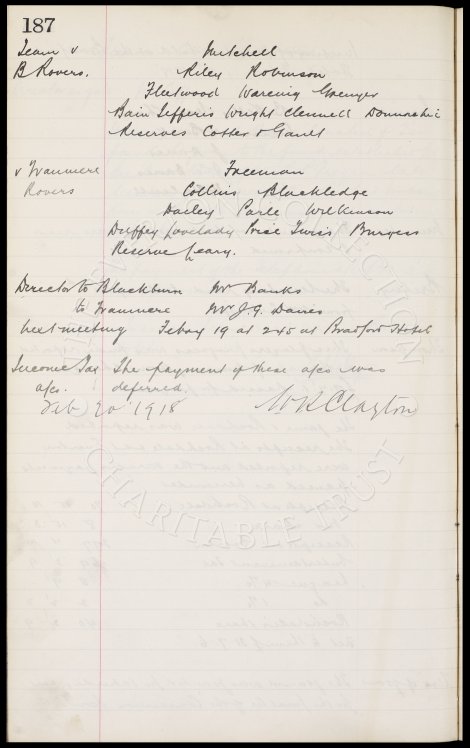 187
Team v Mitchell
B Rovers. Riley Robinson
Fleetwood Wareing Grenyer
Bain Jefferis Wright Clennell Donnachie
Reserves Cotter & Gault
v Tranmere Freeman
Rovers Collins Blackledge
Dailey Parle Wilkinson
Duffey Lovelady Price Twiss Burgess
Reserve Leary.
Director to Blackburn Mr Banks
to Tranmere Mr J.G. Davies
Next meeting Febry 19 at 2.45 at Bradford Hotel
Income Tax The payment of these a/cs was
a/cs. deferred.
Feb 20 1918 W R Clayton
COLLECTION
CHARITABLE TRUST